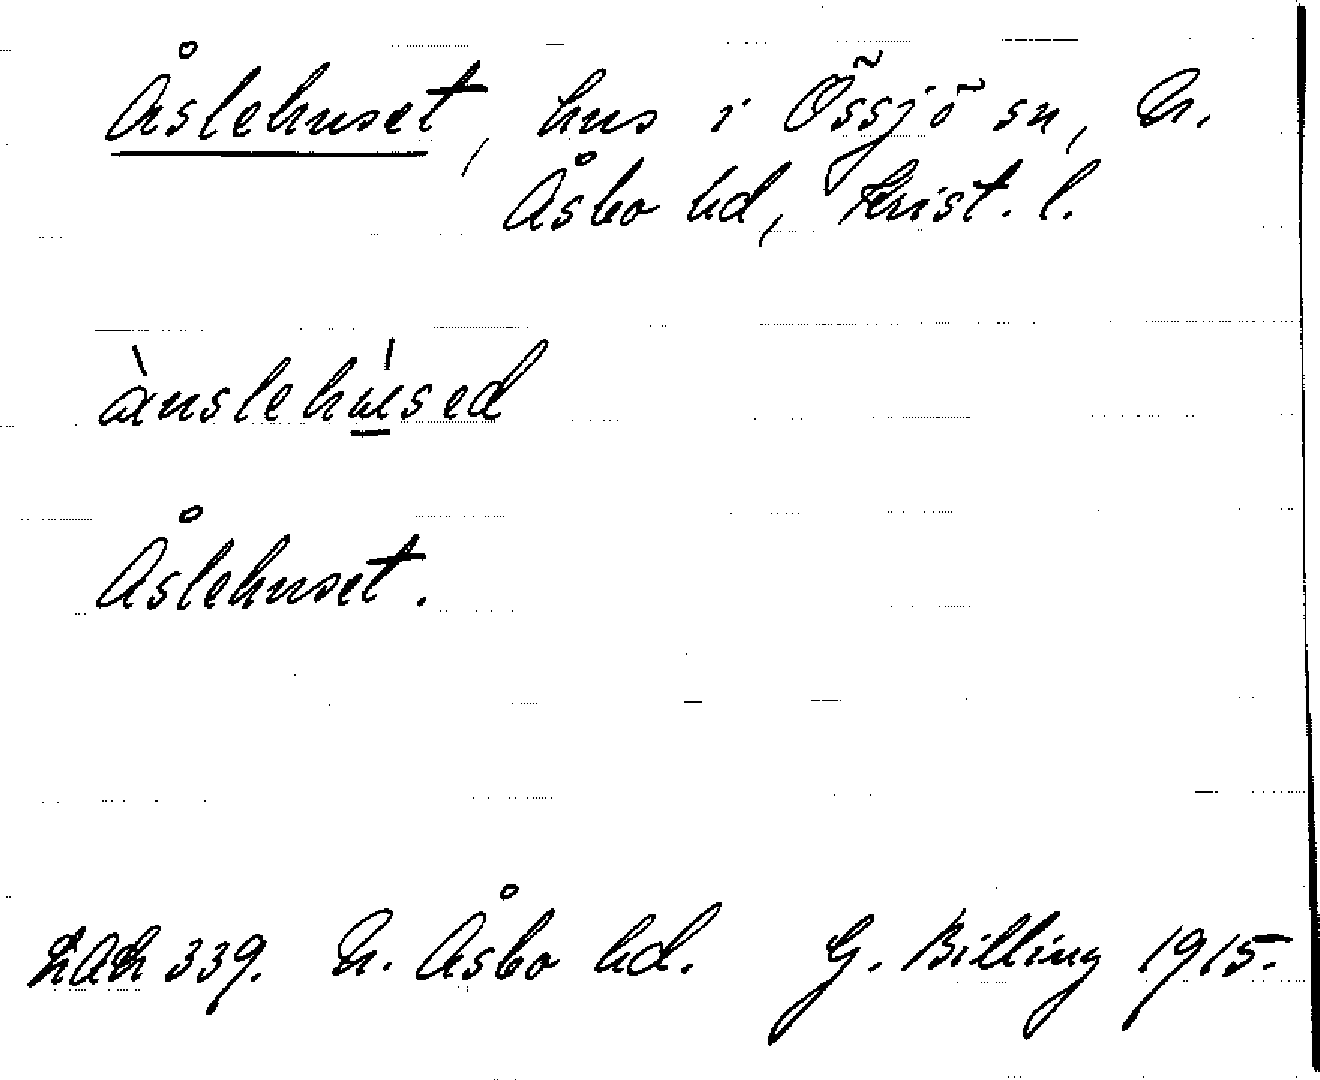 Åslehuset, hus i Össjö sn, N.
Åsbo hd, Krist. l.
Åslehuset.
LAL 339. N. Åsbo hd. G. Billing 1915.